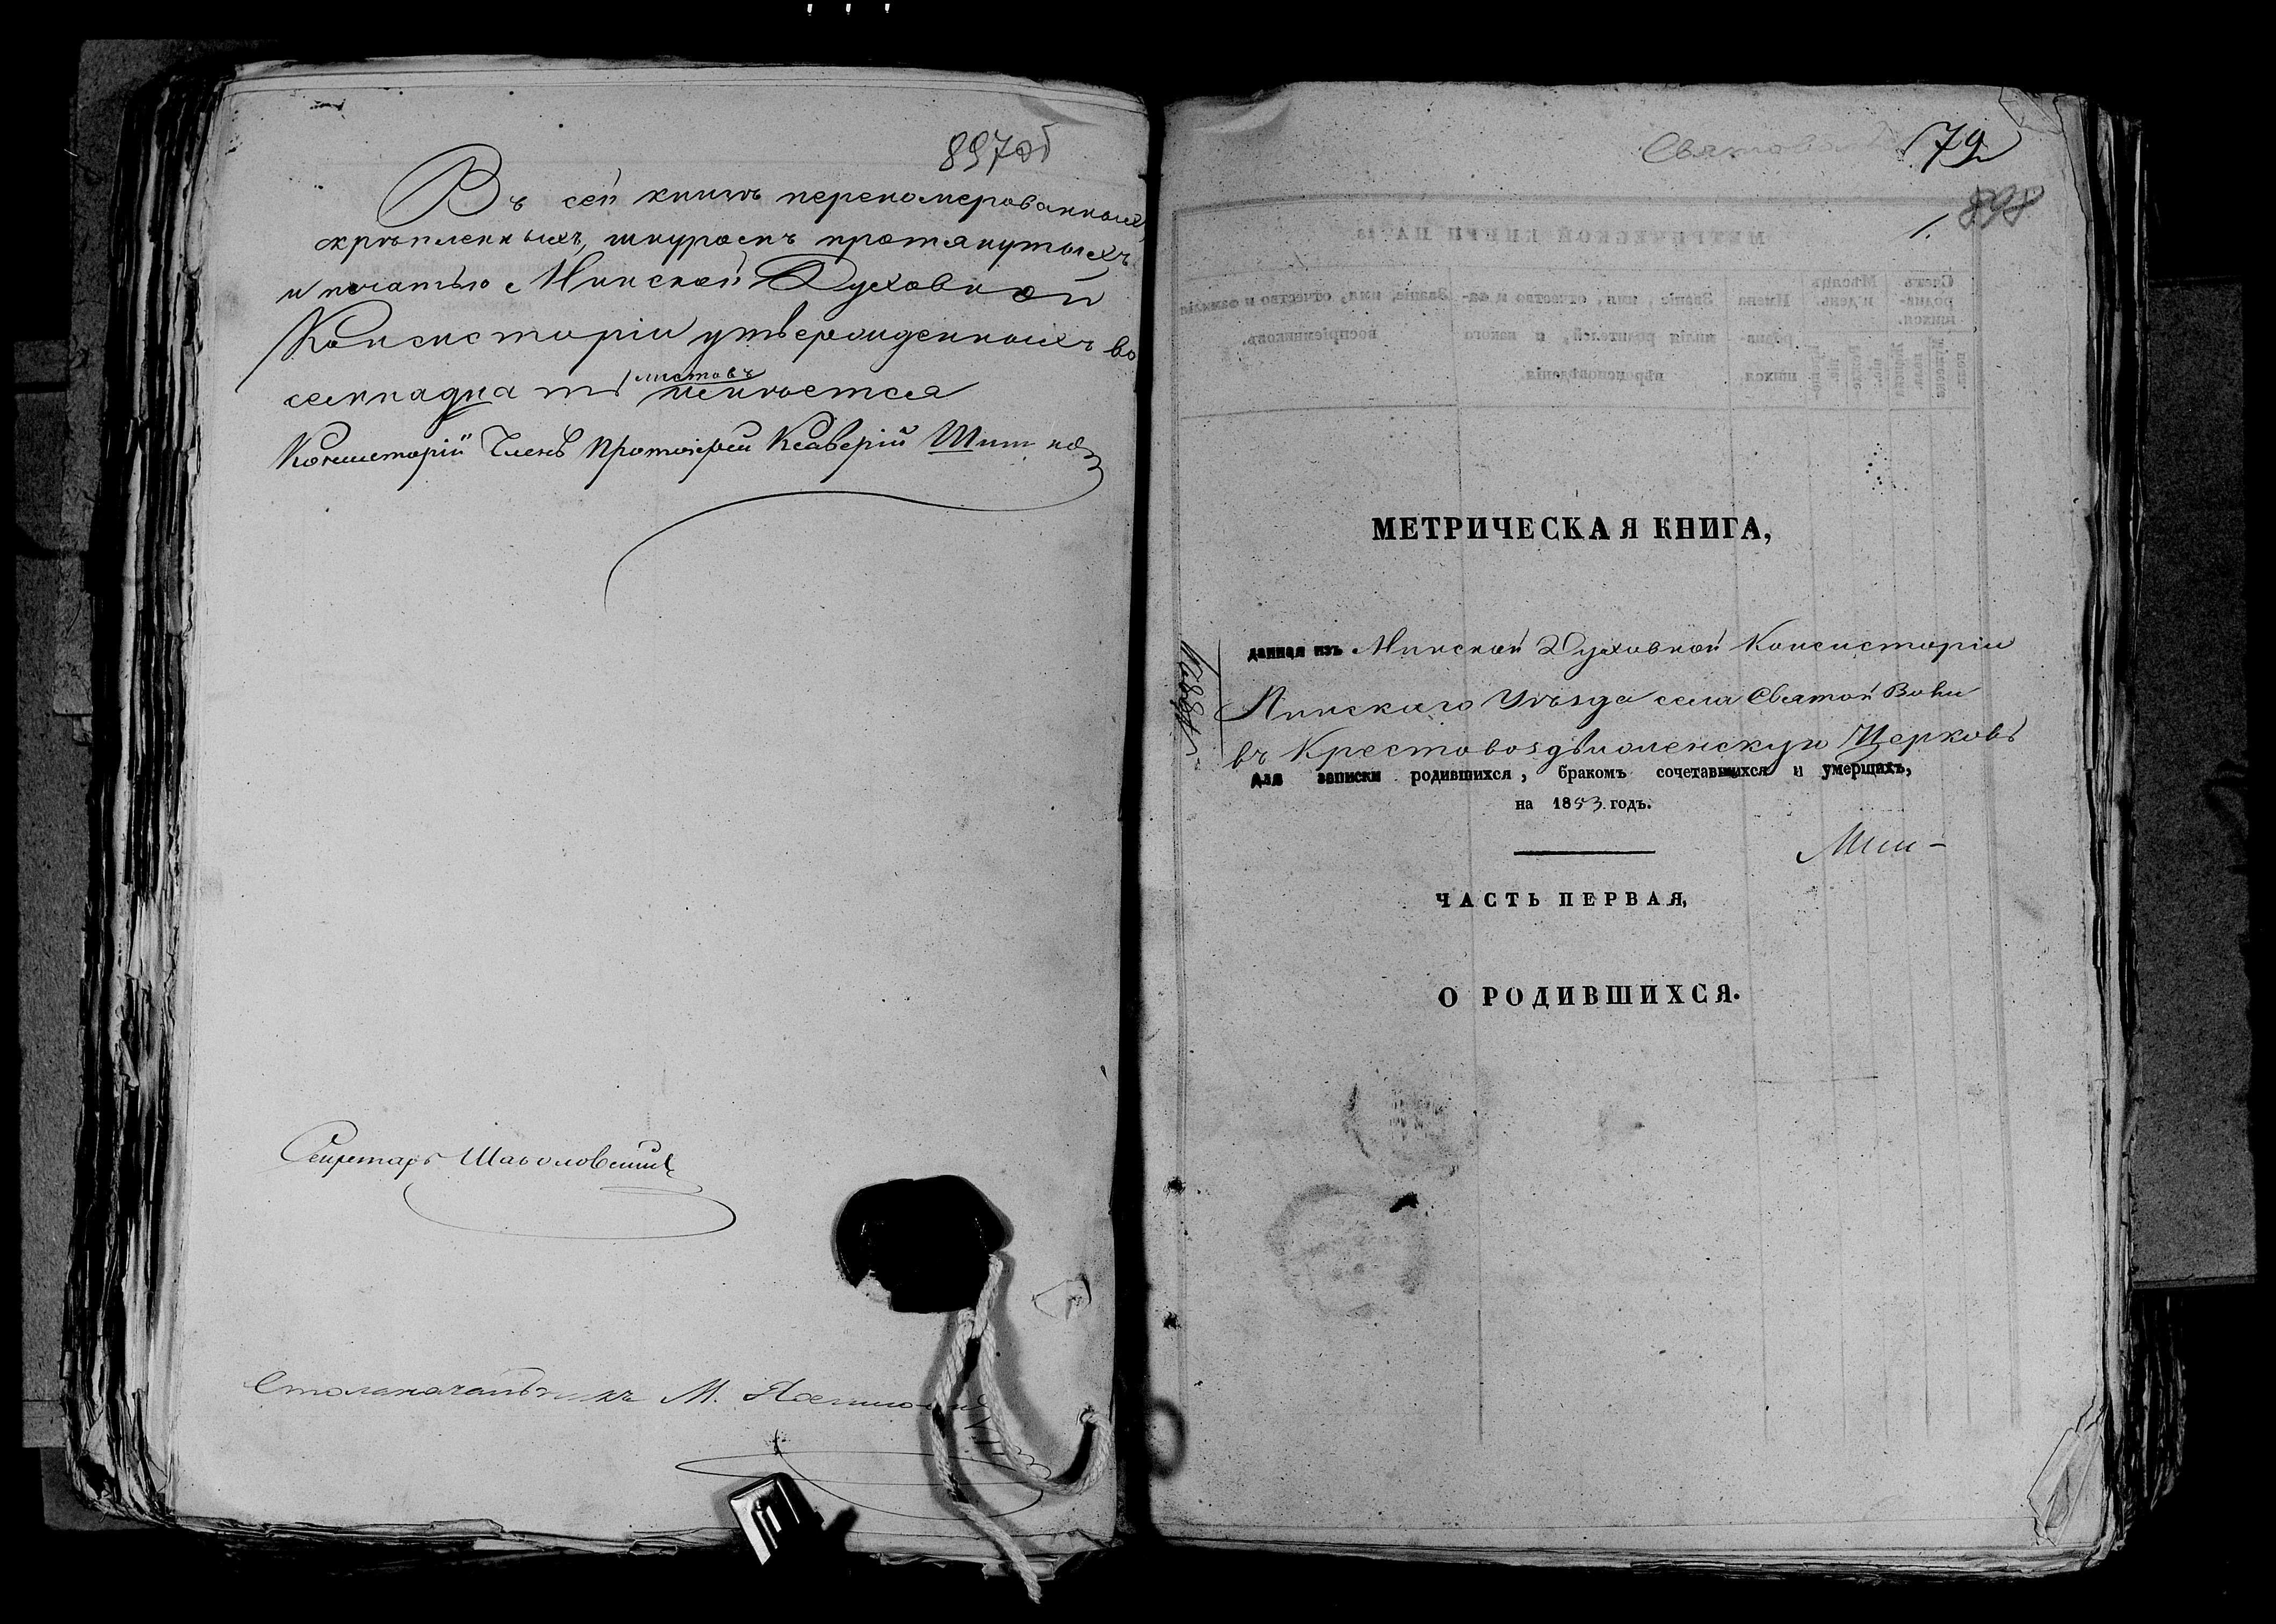 897об
Въ сей книгѣ переномерованныхъ,
скрѣпленныхъ, шнуромъ протянутыхъ
и печатью Минской Духовной
Консисторіи утвержденныхъ во
семнадцать листовъ имѣется
Консисторіи Членъ Протоіерей Ксаверій
Секретарь
Столоначальникъ М.
79
898
1.
МЕТРИЧЕСКАЯ КНИГА,
данная изъ Минской Духовной Консисторіи
Пинскаго Уѣзда села Святой Воли
въ Крестовоздвиженскую Церковь
для записки родившихся, бракомъ сочетавшихся и умершихъ,
на 1853 годъ.
ЧАСТЬ ПЕРВАЯ,
О РОДИВШИХСЯ.